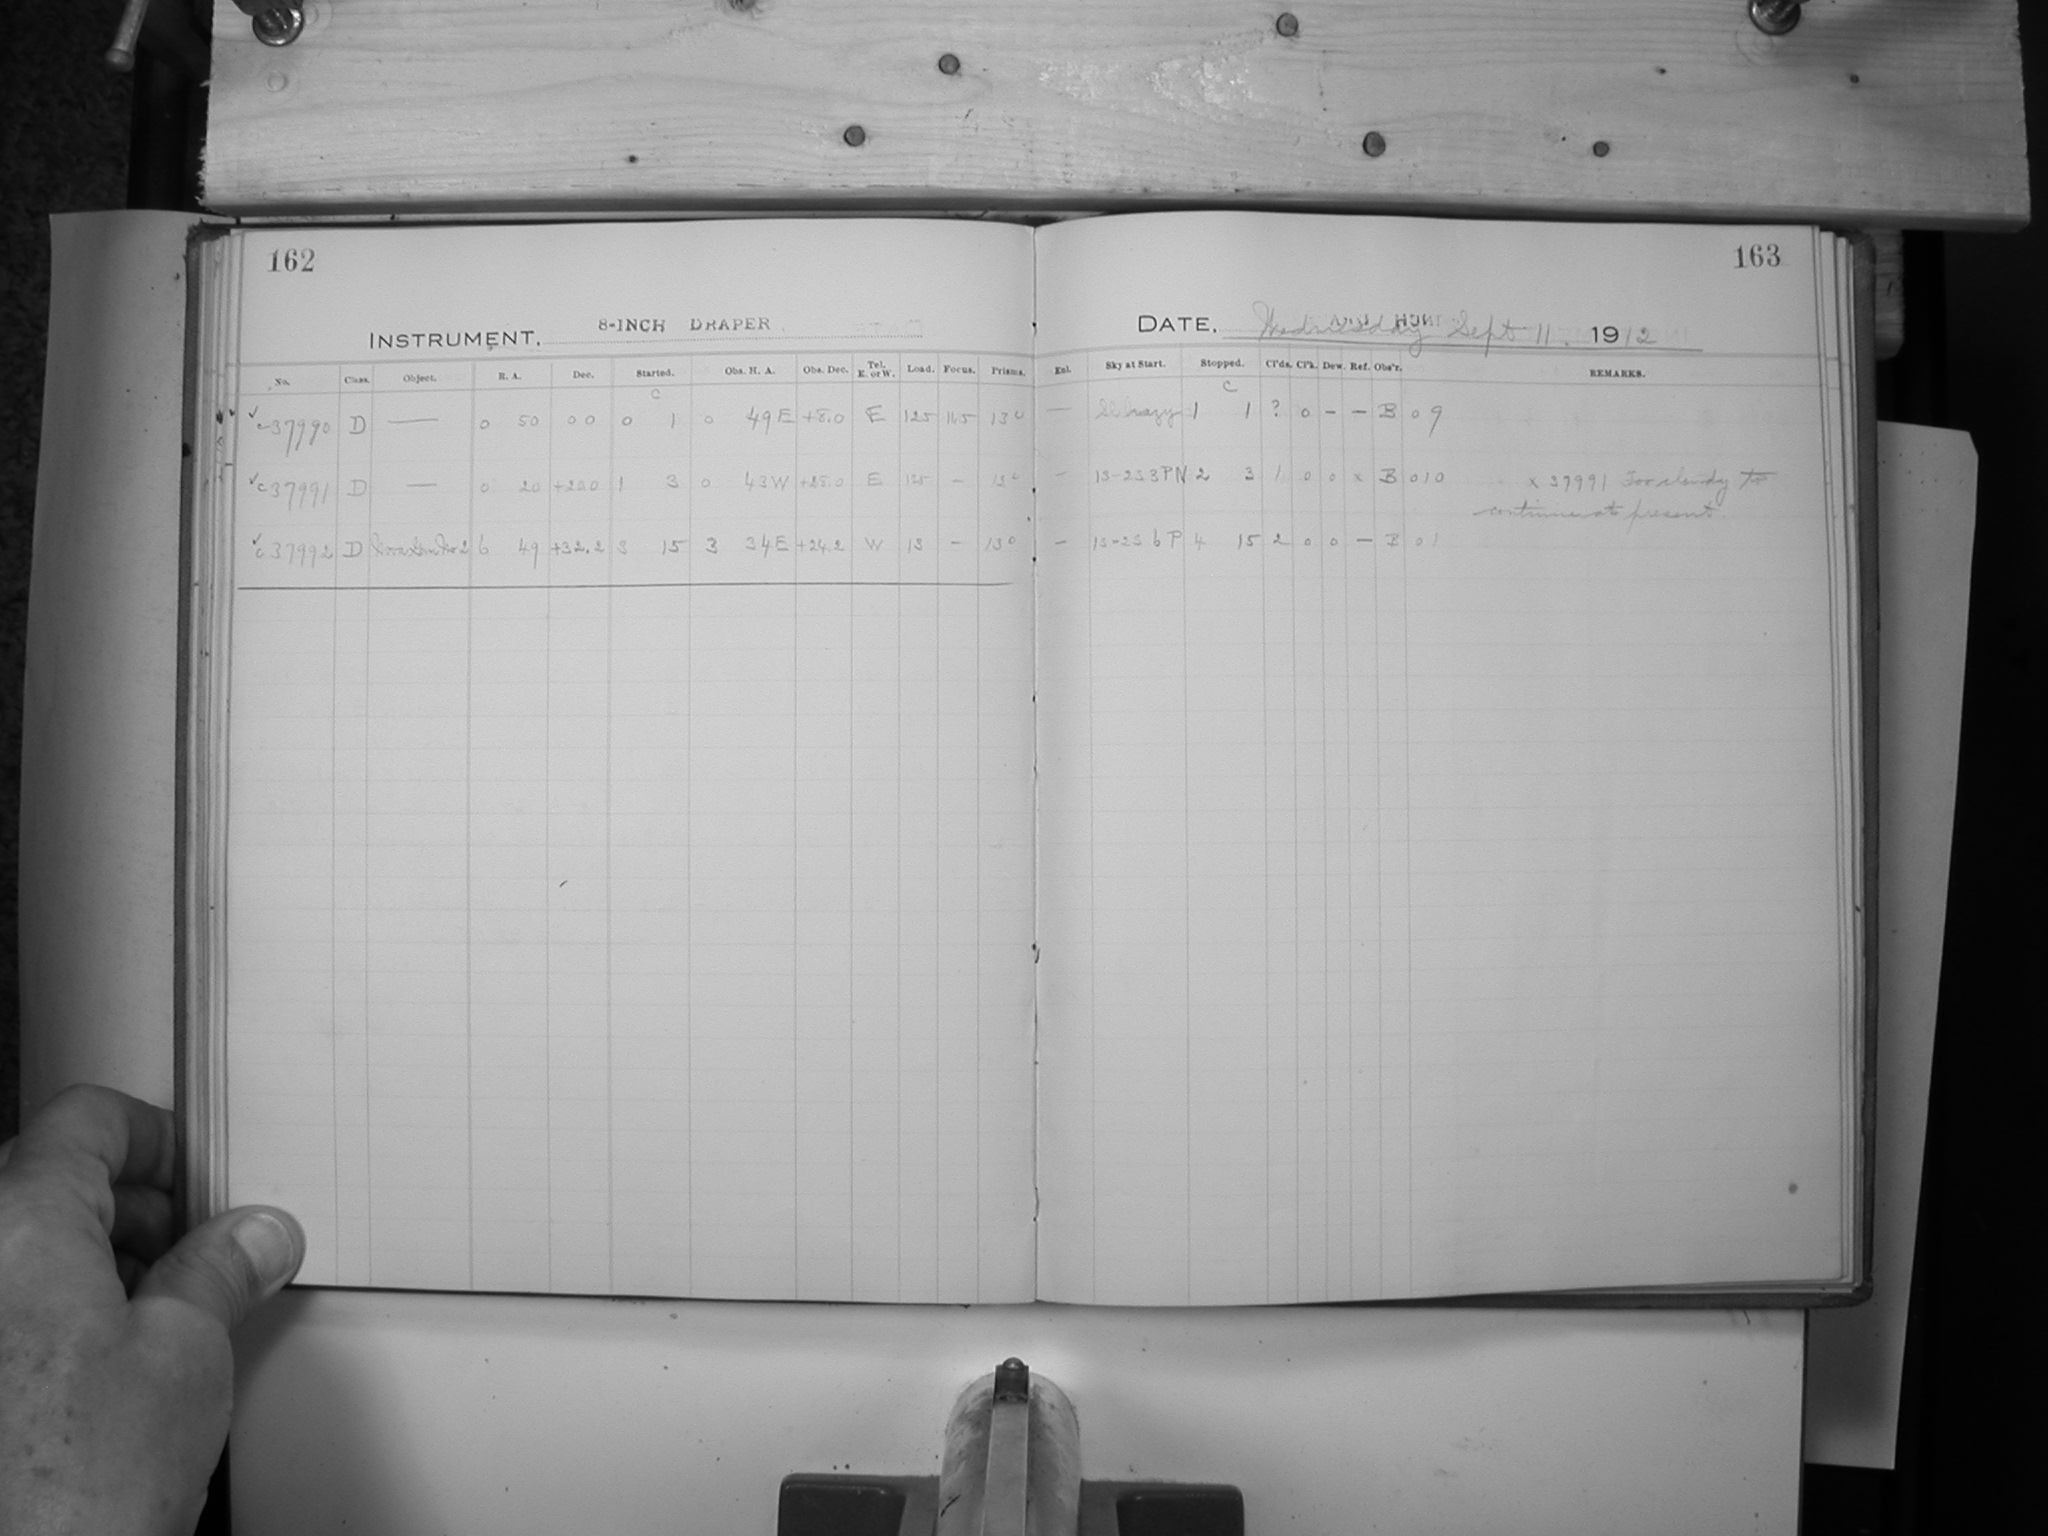 162
INSTRUMENT. 8-INCH DRAPER
No. Class. Object. R. A. Dec. Started. Obs. H. A. Obs. Dec. Tel. E. or W. Load. Focus. Prisms.
C
✓ c37990 D — 0 50 00 0 1 0 49 E +8.0 E 125 11.5 13
✓ c37991 D — 0 20 +20.0 1 3 0 43 W +28.0 E 125 – 13
✓ c37992 D No 2 6 49 +32.2 3 15 3 34 E +24.2 W 13 – 13
163
DATE. Wednesday Sept 11. 1912
Enl. Sky at Start. Stopped. Cl'ds. Cl'k. Dew. Ref. Obs'r. REMARKS.
C
— Sl hazy 1 1 ? 0 – – B 09
– 1S-2S 3PN 2 3 1 0 0 x B 010 x 37991 Too cloudy to
continue at present
– 1S-2S 6 P 4 15 2 0 0 – B 01